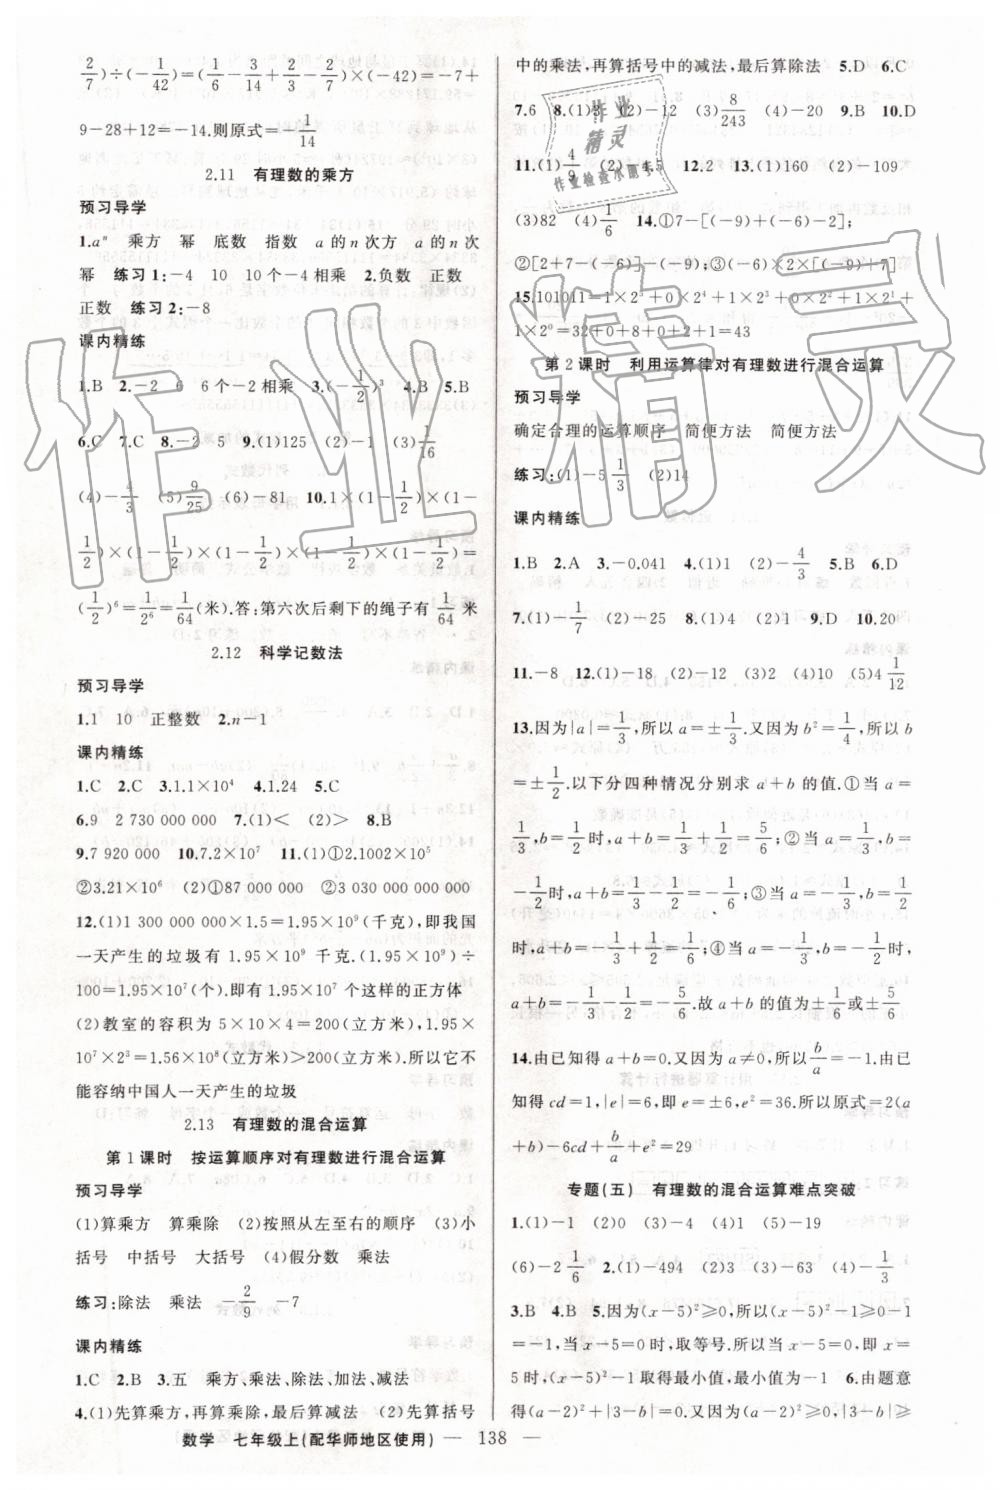 2/7)÷(-1/42)=(-1/6-3/14+2/3-2/7)×(-42)=-7+
9-28+12=-14.则原式=-1/14
2.11 有理数的乘方
预习导学
1.aⁿ 乘方 幂 底数 指数 a的n次方 a的n次
幂 练习1:-4 10 10个-4相乘 2.负数 正数
正数 练习2:-8
课内精练
1.B 2.-2 6 6个-2相乘 3.(-1/2)³ 4.B 5.B
6.C 7.C 8.-2 5 9.(1)125 (2)-1 (3)1/16
(4)-4/3 (5)9/25 (6)-81 10.1×(1-1/2)×(1-
1/2)×(1-1/2)×(1-1/2)×(1-1/2)×(1-1/2)=
(1/2)⁶=1/2⁶=1/64(米).答:第六次后剩下的绳子有1/64米
2.12 科学记数法
预习导学
1.1 10 正整数 2.n-1
课内精练
1.C 2.C 3.1.1×10⁴ 4.1.24 5.C
6.9 2 730 000 000 7.(1)< (2)> 8.B
9.7 920 000 10.7.2×10⁷ 11.(1)①2.1002×10⁵
②3.21×10⁶ (2)①87 000 000 ②3 030 000 000 000
12.(1)1 300 000 000×1.5=1.95×10⁹(千克),即我国
一天产生的垃圾有 1.95×10⁹ 千克.(1.95×10⁹)÷
100=1.95×10⁷(个).即有 1.95×10⁷ 个这样的正方体
(2)教室的容积为 5×10×4=200(立方米),1.95×
10⁷×2³=1.56×10⁸(立方米)>200(立方米).所以它不
能容纳中国人一天产生的垃圾
2.13 有理数的混合运算
第1课时 按运算顺序对有理数进行混合运算
预习导学
(1)算乘方 算乘除 (2)按照从左至右的顺序 (3)小
括号 中括号 大括号 (4)假分数 乘法
练习:除法 乘法 -2/9 -7
课内精练
1.C 2.B 3.五 乘方、乘法、除法、加法、减法
4.(1)先算乘方,再算乘除,最后算加减 (2)先算括号
中的乘法,再算括号中的减法,最后算除法 5.D 6.C
7.6 8.(1)25 (2)-12 (3)8/243 (4)40 9.B 10.D
11.(1)4/9 (2)-4.5 12.2 13.(1)16 (2)-109
(3)82 (4)1/6 14.①7-[(-9)+(-6)-2];
②[2+7-(-6)]-(-9) ③-(-6)×2×[(-9)+7]
15.101011=1×2⁵+0×2⁴+1×2³+0×2²+1×2¹+
1×2⁰=32+0+8+0+2+1=43
第2课时 利用运算律对有理数进行混合运算
预习导学
确定合理的运算顺序 简便方法 简便方法
练习:(1)-5 1/3 (2)14
课内精练
1.B 2.A 3.-0.041 4.(1)10 (2)-4/3 5.B 6.D
7.(1)-1/7 (2)-25 8.(1)4 (2)1 9.D 10.20
11.-8 12.(1)-18 (2)-12 (3)2 (4)10 (5)4 1/12
13.因为|a|=1/3,所以a=±1/3.又因为b²=1/4,所以b
=±1/2.以下分四种情况分别求a+b的值.①当a=
1/3,b=1/2时,a+b=1/3+1/2=5/6;②当a=1/3,b=
-1/2时,a+b=1/3-1/2=-1/6;③当a=-1/3,b=1/2
时,a+b=-1/3+1/2=1/6;④当a=-1/3,b=-1/2时,
a+b=-1/3-1/2=-5/6.故a+b的值为±1/6或±5/6
14.由已知得a+b=0.又因为a≠0,所以b/a=-1.由已
知得cd=1,|e|=6,即e=±6,e²=36.所以原式=2(a
+b)-6cd+b/a+e²=29
专题(五) 有理数的混合运算难点突破
1.(1)-1 (2)0 (3)-4 (4)1 (5)-19
(6)-2 1/6 2.(1)-494 (2)3 (3)-63 (4)-1/3
3.B 4.B 5.因为(x-5)²≥0,所以(x-5)²-1≥0-1
=-1,当x-5=0时,取等号.所以x-5=0,即x=
5时,(x-5)²-1取得最小值,最小值为-1 6.由题意
得(x-2)²≥0,所以-(x-2)²≤0,所以3-(x-2)²≤
数学 七年级上(配华师地区使用) — 138 —
作业精灵
作业
精灵
作业检查小帮手